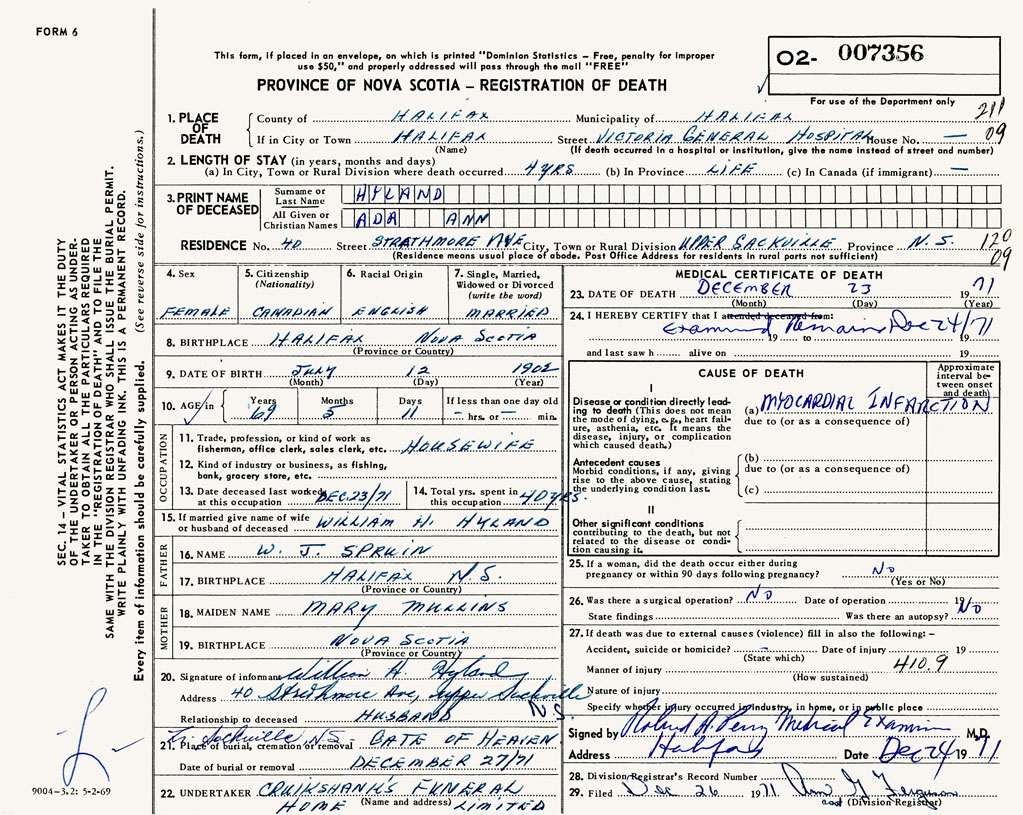 FORM 6
This form, if placed in an envelope, on which is printed "Dominion Statistics – Free, penalty for improper
use $50," and properly addressed will pass through the mail "FREE"
PROVINCE OF NOVA SCOTIA – REGISTRATION OF DEATH
02- 007356
For use of the Department only
211
09
1. PLACE OF DEATH
County of HALIFAX Municipality of HALIFAX
If in City or Town HALIFAX Street VICTORIA GENERAL HOSPITAL House No. —
(Name) (If death occurred in a hospital or institution, give the name instead of street and number)
2. LENGTH OF STAY (in years, months and days)
(a) In City, Town or Rural Division where death occurred 4 YRS (b) In Province LIFE (c) In Canada (if immigrant) —
3. PRINT NAME OF DECEASED
Surname or Last Name HYLAND
All Given or Christian Names ADA ANN
RESIDENCE No. 40 Street STRATHMORE AVE City, Town or Rural Division UPPER SACKVILLE Province N.S.
120
09
(Residence means usual place of abode. Post Office Address for residents in rural parts not sufficient)
4. Sex
FEMALE
5. Citizenship (Nationality)
CANADIAN
6. Racial Origin
ENGLISH
7. Single, Married, Widowed or Divorced (write the word)
MARRIED
8. BIRTHPLACE HALIFAX NOVA SCOTIA
(Province or Country)
9. DATE OF BIRTH JULY 12 1902
(Month) (Day) (Year)
10. AGE in Years Months Days If less than one day old
69 5 11 — hrs. or — min.
OCCUPATION
11. Trade, profession, or kind of work as
fisherman, office clerk, sales clerk, etc. HOUSEWIFE
12. Kind of industry or business, as fishing,
bank, grocery store, etc.
13. Date deceased last worked
at this occupation DEC. 23/71
14. Total yrs. spent in
this occupation 40 YRS.
15. If married give name of wife
or husband of deceased WILLIAM H. HYLAND
FATHER
16. NAME W. J. SPRUIN
17. BIRTHPLACE HALIFAX N.S.
(Province or Country)
MOTHER
18. MAIDEN NAME MARY MULLINS
19. BIRTHPLACE NOVA SCOTIA
(Province or Country)
20. Signature of informant William H. Hyland
Address 40 Strathmore Ave, Upper Sackville N.S.
Relationship to deceased HUSBAND
21. Place of burial, cremation or removal Sackville N.S. GATE OF HEAVEN
Date of burial or removal DECEMBER 27/71
22. UNDERTAKER CRUIKSHANKS FUNERAL
HOME (Name and address) LIMITED
MEDICAL CERTIFICATE OF DEATH
23. DATE OF DEATH DECEMBER 23 1971
(Month) (Day) (Year)
24. I HEREBY CERTIFY that I attended deceased from:
Examined Remains Dec 24/71
19 to 19
and last saw h alive on 19
CAUSE OF DEATH
Approximate interval between onset and death)
I
Disease or condition directly leading to death (This does not mean
the mode of dying, e.g., heart failure, asthenia, etc. It means the
disease, injury, or complication
which caused death.)
(a) MYOCARDIAL INFARCTION
due to (or as a consequence of)
Antecedent causes
Morbid conditions, if any, giving
rise to the above cause, stating
the underlying condition last.
(b)
due to (or as a consequence of)
(c)
II
Other significant conditions
contributing to the death, but not
related to the disease or condition causing it.
25. If a woman, did the death occur either during
pregnancy or within 90 days following pregnancy? NO
(Yes or No)
26. Was there a surgical operation? NO Date of operation 19
State findings Was there an autopsy? NO
27. If death was due to external causes (violence) fill in also the following: –
Accident, suicide or homicide? – Date of injury 19
(State which)
Manner of injury 410.9
(How sustained)
Nature of injury
Specify whether injury occurred in industry, in home, or in public place
Signed by Roland A. Perry Medical Examiner M.D.
Address Halifax Date Dec 24 1971
28. Division Registrar's Record Number
29. Filed Dec 26 1971 Ferguson
(Division Registrar)
SEC. 14 – VITAL STATISTICS ACT MAKES IT THE DUTY
OF THE UNDERTAKER OR PERSON ACTING AS UNDER-
TAKER TO OBTAIN ALL THE PARTICULARS REQUIRED
IN THE "REGISTRATION OF DEATH" AND TO FILE THE
SAME WITH THE DIVISION REGISTRAR WHO SHALL ISSUE THE BURIAL PERMIT.
WRITE PLAINLY WITH UNFADING INK. THIS IS A PERMANENT RECORD.
Every item of information should be carefully supplied. (See reverse side for instructions.)
9004-3.2: 5-2-69